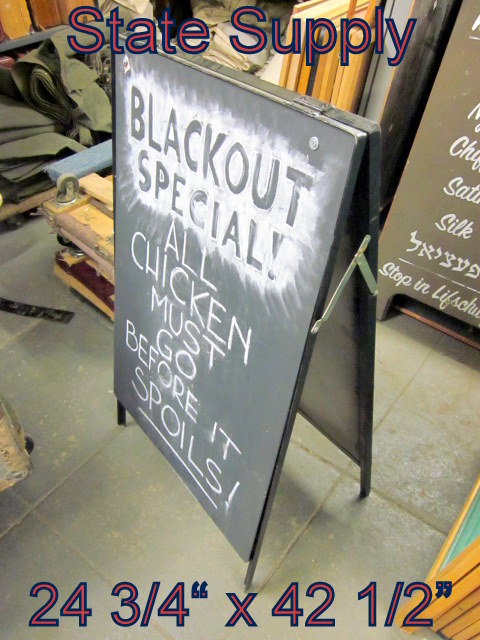 State Supply
BLACKOUT
SPECIAL!
ALL
CHICKEN
MUST
GO
BEFORE IT
SPOILS!
Chif
Satin
Silk
Stop in Lifschu
24 3/4“ x 42 1/2”